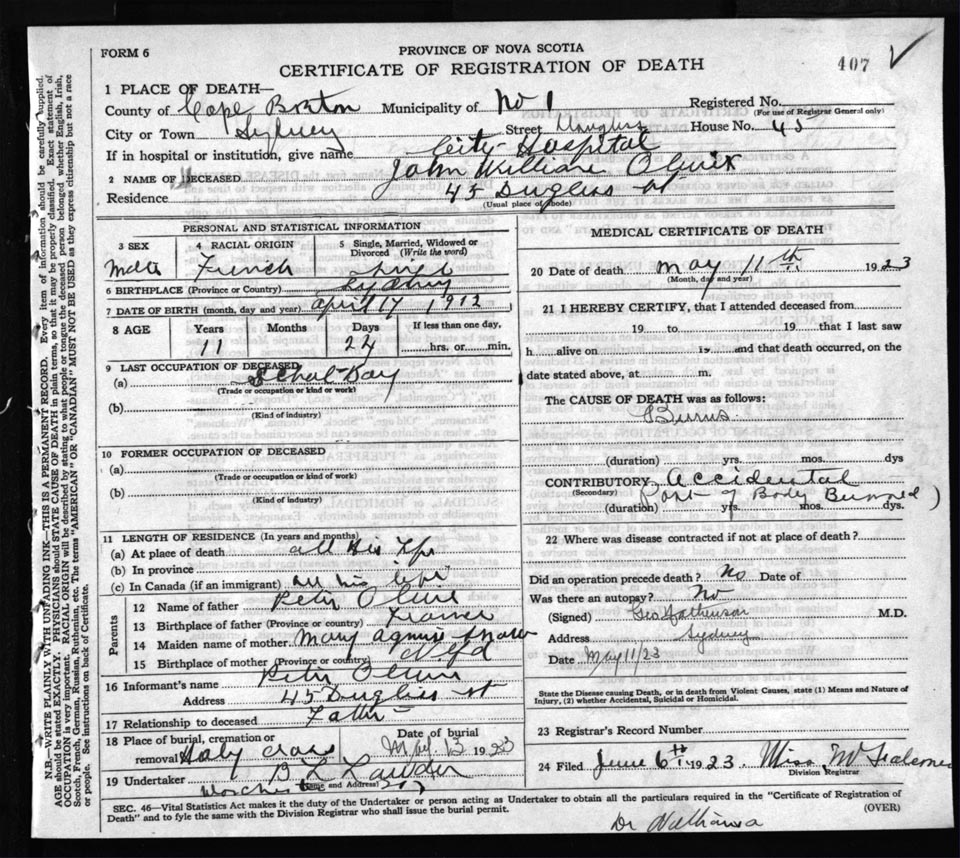 FORM 6
PROVINCE OF NOVA SCOTIA
407
CERTIFICATE OF REGISTRATION OF DEATH
1 PLACE OF DEATH—
County of Cape Breton Municipality of No 1 Registered No.
(For use of Registrar General only)
City or Town Sydney Street Douglas House No. 45
If in hospital or institution, give name City Hospital
2 NAME OF DECEASED John William
Residence 45 Duglass st
(Usual place of abode)
PERSONAL AND STATISTICAL INFORMATION
3 SEX Male
4 RACIAL ORIGIN French
5 Single, Married, Widowed or Divorced (Write the word)
6 BIRTHPLACE (Province or Country) Sydney
7 DATE OF BIRTH (month, day and year) April 17 1912
8 AGE Years Months Days If less than one day,
11 24 hrs. or min.
9 LAST OCCUPATION OF DECEASED
(a) School-Boy
(Trade or occupation or kind or work)
(b)
(Kind of industry)
10 FORMER OCCUPATION OF DECEASED
(a)
(Trade or occupation or kind of work)
(b)
(Kind of industry)
11 LENGTH OF RESIDENCE (In years and months)
(a) At place of death all his life
(b) In province
(c) In Canada (if an immigrant) all his life
Parents
12 Name of father Peter
13 Birthplace of father (Province or country) France
14 Maiden name of mother Mary Agnus
15 Birthplace of mother (Province or country) Nfd
16 Informant's name Peter
Address 45 Duglass st
17 Relationship to deceased Father
18 Place of burial, cremation or removal Holy Cross
Date of burial May 13 1923
19 Undertaker B L
(Name and Address)
MEDICAL CERTIFICATE OF DEATH
20 Date of death May 11th 1923
(Month, day and year)
21 I HEREBY CERTIFY, that I attended deceased from
19 to 19 that I last saw
h alive on 19 and that death occurred, on the
date stated above, at m.
The CAUSE OF DEATH was as follows:
Burns
(duration) yrs. mos. dys
CONTRIBUTORY Accidental
(Secondary) Part of Body Burned)
(duration) yrs. mos. dys.
22 Where was disease contracted if not at place of death?
Did an operation precede death? No Date of
Was there an autopsy? No
(Signed) Geo M.D.
Address Sydney
Date May 11/23
State the Disease causing Death, or in death from Violent Causes, state (1) Means and Nature of
Injury, (2) whether Accidental, Suicidal or Homicidal.
23 Registrar's Record Number
24 Filed June 6th 1923. Miss
Division Registrar
SEC. 46—Vital Statistics Act makes it the duty of the Undertaker or person acting as Undertaker to obtain all the particulars required in the "Certificate of Registration of
Death" and to fyle the same with the Division Registrar who shall issue the burial permit.
(OVER)
Dr
N.B.—WRITE PLAINLY WITH UNFADING INK—THIS IS A PERMANENT RECORD. Every item of information should be carefully supplied.
AGE should be stated EXACTLY. PHYSICIANS should STATE CAUSE OF DEATH in plain terms, so that it may be properly classified. Exact statement of
OCCUPATION is very important. RACIAL ORIGIN will be described by stating to what people or tongue the deceased person belonged whether English, Irish,
Scotch, French, German, Russian, Ruthenian, etc. The terms "AMERICAN" or "CANADIAN" MUST NOT BE USED as they express citizenship but not a race
or people. See instructions on back of Certificate.